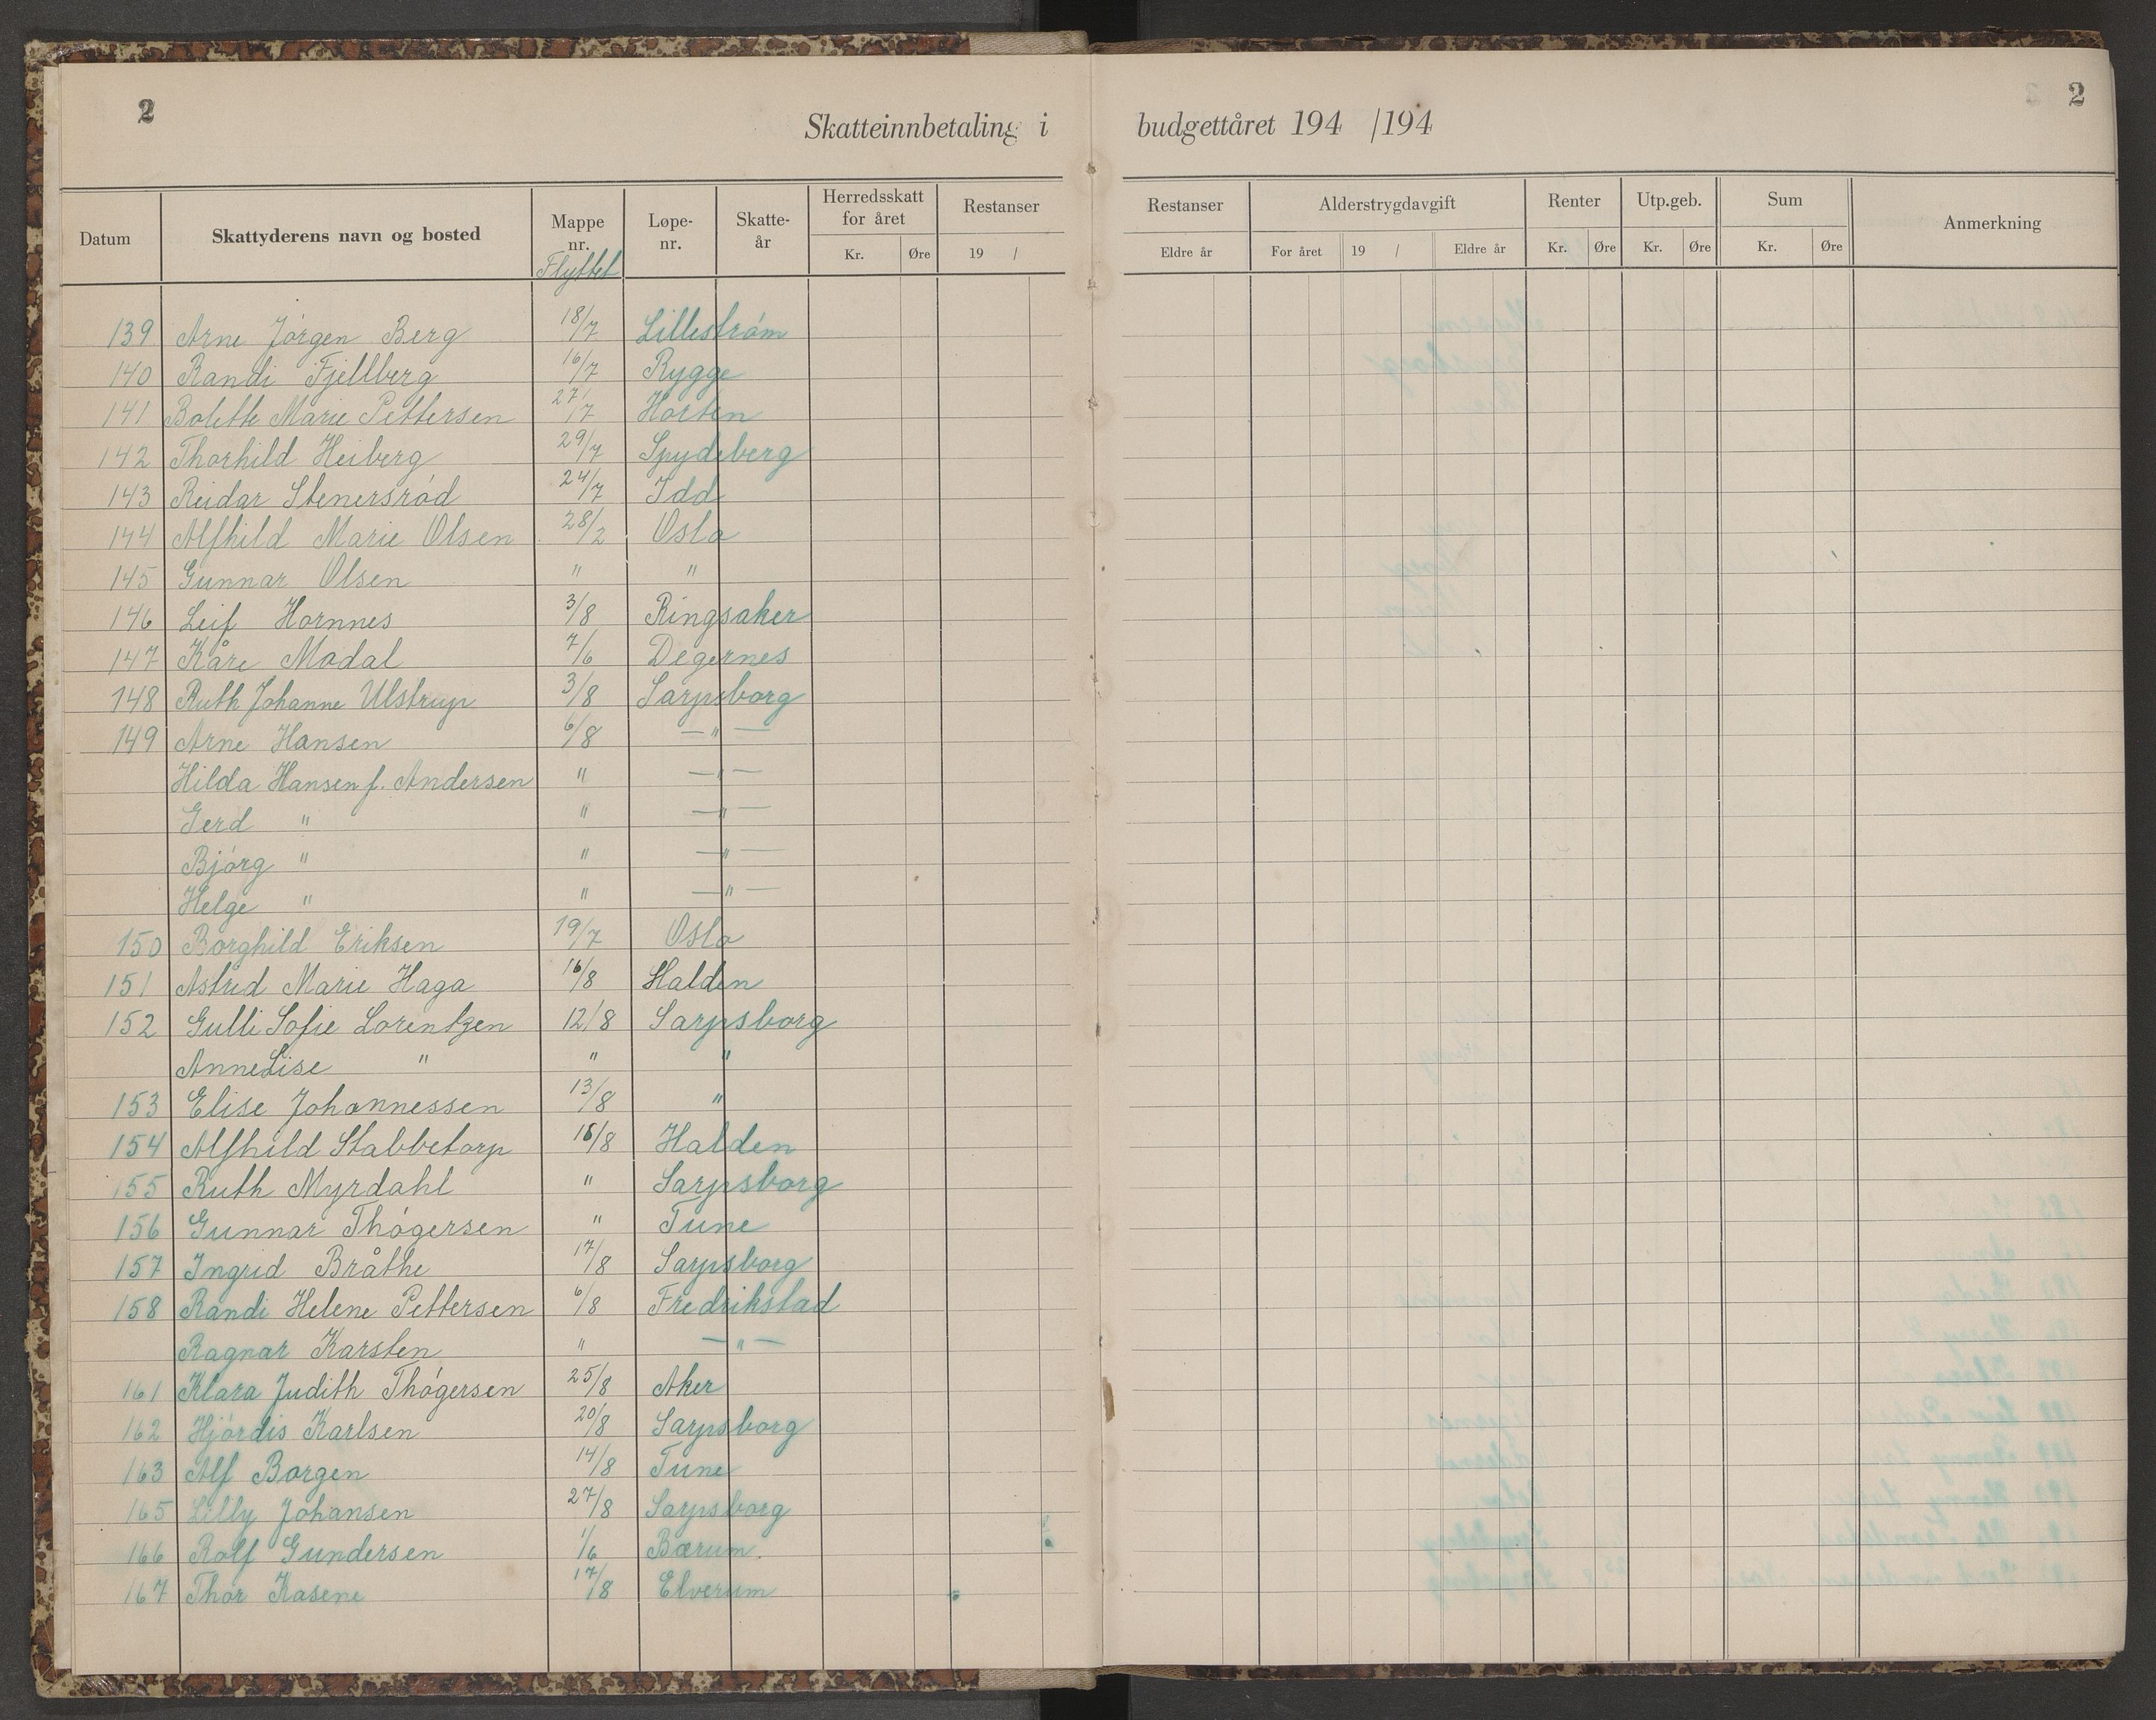 2
2
Skatteinnbetaling i budgettåret 194 /194
Datum Skattyderens navn og bosted Mappe nr. Løpe-nr. Skatte-år Herredsskatt for året Kr. Øre Restanser 19 / Restanser Eldre år Alderstrygdavgift For året 19 / Eldre år Renter Kr. Øre Utp.geb. Kr. Øre Sum Kr. Øre Anmerkning
Flyttet
139 Arne Jörgen Berg 18/7 Lilleström
140 Randi Fjellberg 16/7 Rygge
141 Bolette Marie Pettersen 27/7 Horten
142 Thorhild Heiberg 29/7 Spydeberg
143 Reidar Stenersröd 24/7 Idd
144 Alfhild Marie Olsen 28/2 Oslo
145 Gunnar Olsen " "
146 Leif Hornnes 3/8 Ringsaker
147 Kåre Modal 7/6 Degernes
148 Ruth Johanne Ulstrup 3/8 Sarpsborg
149 Arne Hansen 6/8 — " —
Hilda Hansen f. Andersen " — " —
Gerd " " — " —
Bjórg " " — " —
Helge " " — " —
150 Borghild Eriksen 19/7 Oslo
151 Astrid Marie Haga 16/8 Halden
152 Gulli Sofie Lorentzen 12/8 Sarpsborg
AnneLise " " "
153 Elise Johannessen 13/8 "
154 Alfhild Stabbetorp 16/8 Halden
155 Ruth Myrdahl " Sarpsborg
156 Gunnar Thógersen " Tune
157 Ingrid Bråthe 17/8 Sarpsborg
158 Randi Helene Pettersen 6/8 Fredrikstad
Ragnar Karsten " — " —
161 Klara Judith Thógersen 25/8 Aker
162 Hjórdis Karlsen 20/8 Sarpsborg
163 Alf Borgen 14/8 Tune
165 Lilly Johansen 27/8 Sarpsborg
166 Rolf Gundersen 1/6 Bærum.
167 Thor Kasene 17/8 Elverum